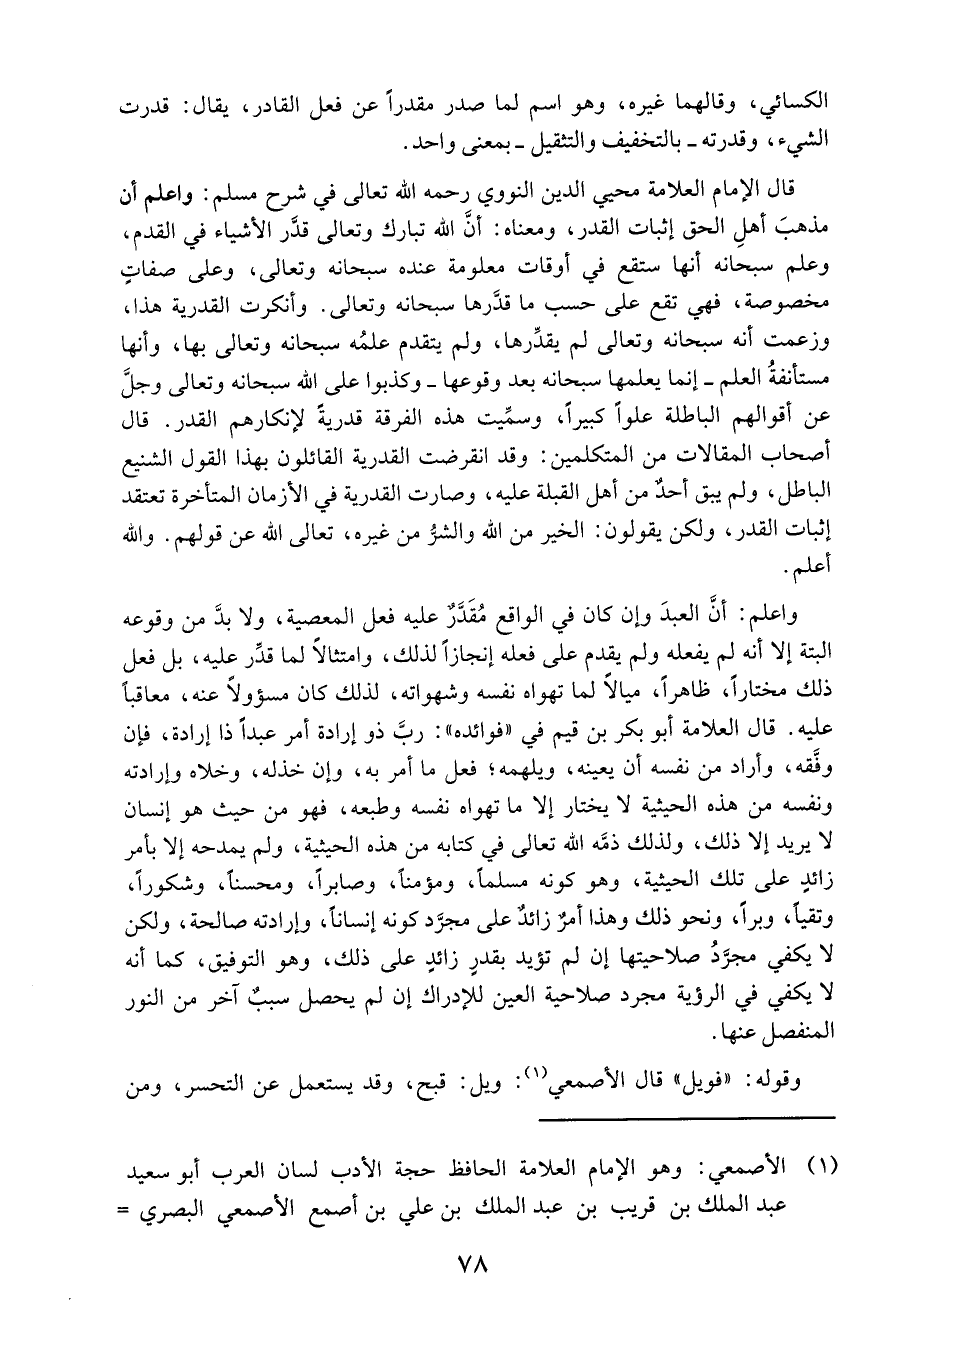 الكسائي، وقالهما غيره، وهو اسم لما صدر مقدراً عن فعل القادر، يقال: قدرت
الشيء، وقدرته ـ بالتخفيف والتثقيل ـ بمعنى واحد.
قال الإمام العلامة محيي الدين النووي رحمه الله تعالى في شرح مسلم: واعلم أن
مذهبَ أهلِ الحق إثبات القدر، ومعناه: أنَّ الله تبارك وتعالى قدَّر الأشياء في القدم،
وعلم سبحانه أنها ستقع في أوقات معلومة عنده سبحانه وتعالى، وعلى صفاتٍ
مخصوصة، فهي تقع على حسب ما قدَّرها سبحانه وتعالى. وأنكرت القدرية هذا،
وزعمت أنه سبحانه وتعالى لم يقدِّرها، ولم يتقدم علمُه سبحانه وتعالى بها، وأنها
مستأنفةُ العلم ـ إنما يعلمها سبحانه بعد وقوعها ـ وكذبوا على الله سبحانه وتعالى وجلَّ
عن أقوالهم الباطلة علواً كبيراً، وسمِّيت هذه الفرقة قدريةً لإنكارهم القدر. قال
أصحاب المقالات من المتكلمين: وقد انقرضت القدرية القائلون بهذا القول الشنيع
الباطل، ولم يبق أحدٌ من أهل القبلة عليه، وصارت القدرية في الأزمان المتأخرة تعتقد
إثبات القدر، ولكن يقولون: الخير من الله والشرُّ من غيره، تعالى الله عن قولهم. والله
أعلم.
واعلم: أنَّ العبدَ وإن كان في الواقع مُقَدَّرٌ عليه فعل المعصية، ولا بدَّ من وقوعه
البتة إلا أنه لم يفعله ولم يقدم على فعله إنجازاً لذلك، وامتثالاً لما قدِّر عليه، بل فعل
ذلك مختاراً، ظاهراً، ميالاً لما تهواه نفسه وشهواته، لذلك كان مسؤولاً عنه، معاقباً
عليه. قال العلامة أبو بكر بن قيم في «فوائده»: ربَّ ذو إرادة أمر عبداً ذا إرادة، فإن
وفَّقه، وأراد من نفسه أن يعينه، ويلهمه؛ فعل ما أمر به، وإن خذله، وخلاه وإرادته
ونفسه من هذه الحيثية لا يختار إلا ما تهواه نفسه وطبعه، فهو من حيث هو إنسان
لا يريد إلا ذلك، ولذلك ذمَّه الله تعالى في كتابه من هذه الحيثية، ولم يمدحه إلا بأمر
زائدٍ على تلك الحيثية، وهو كونه مسلماً، ومؤمناً، وصابراً، ومحسناً، وشكوراً،
وتقياً، وبراً، ونحو ذلك وهذا أمرٌ زائدٌ على مجرَّد كونه إنساناً، وإرادته صالحة، ولكن
لا يكفي مجرَّدُ صلاحيتها إن لم تؤيد بقدرٍ زائدٍ على ذلك، وهو التوفيق، كما أنه
لا يكفي في الرؤية مجرد صلاحية العين للإدراك إن لم يحصل سببٌ آخر من النور
المنفصل عنها.
وقوله: «فويل» قال الأصمعي(١): ويل: قبح، وقد يستعمل عن التحسر، ومن
(١) الأصمعي: وهو الإمام العلامة الحافظ حجة الأدب لسان العرب أبو سعيد
عبد الملك بن قريب بن عبد الملك بن علي بن أصمع الأصمعي البصري =
٧٨